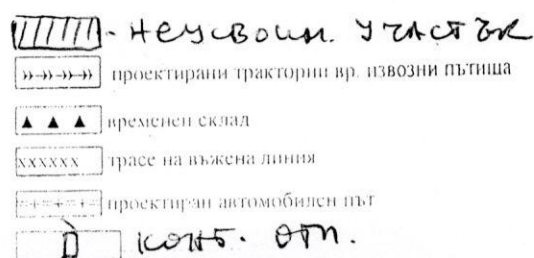 - неусвоим. участък
проектирани тракторни вр. извозни пътища
временен склад
xxxxxx трасе на въжена линия
проектиран автомобилен път
конт. отп.